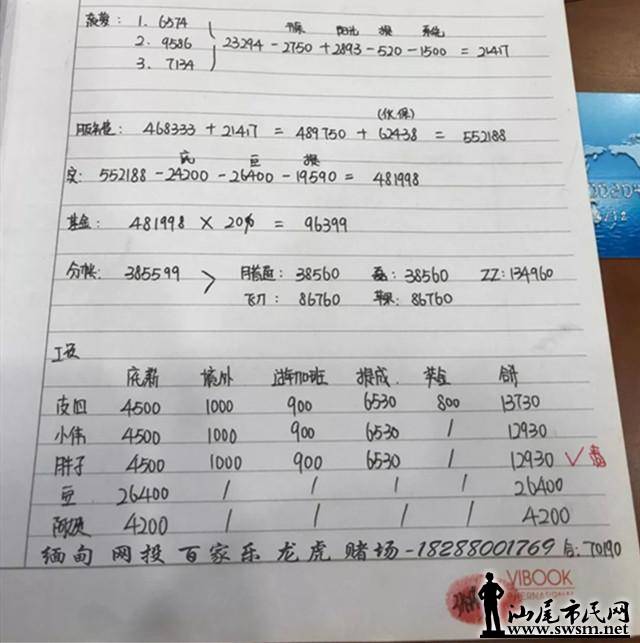 1. 6574
2. 9586
3. 7134
23294 - 2750 + 2893 - 520 - 1500 = 21417
468333 + 21417 = 489750 + 62438 = 552188
底 豆 提
实: 552188 - 24200 - 26400 - 19590 = 481998
基金: 481998 × 20% = 96399
分帐: 385599 > 38560 38560 ZZ: 134960
飞刀: 86760 苹果: 86760
工资
底薪 加班 提成 奖金 合计
皮旦 4500 1000 900 6530 800 13730
小伟 4500 1000 900 6530 / 12930
胖子 4500 1000 900 6530 / 12930 ✓
豆 26400 / / / / 26400
阿姨 4200 / / / / 4200
缅甸 网投 百家乐 龙虎 赌场-18288001769 合: 70190
VIBOOK
INTERNATIONAL
汕尾市民网
www.swsm.net